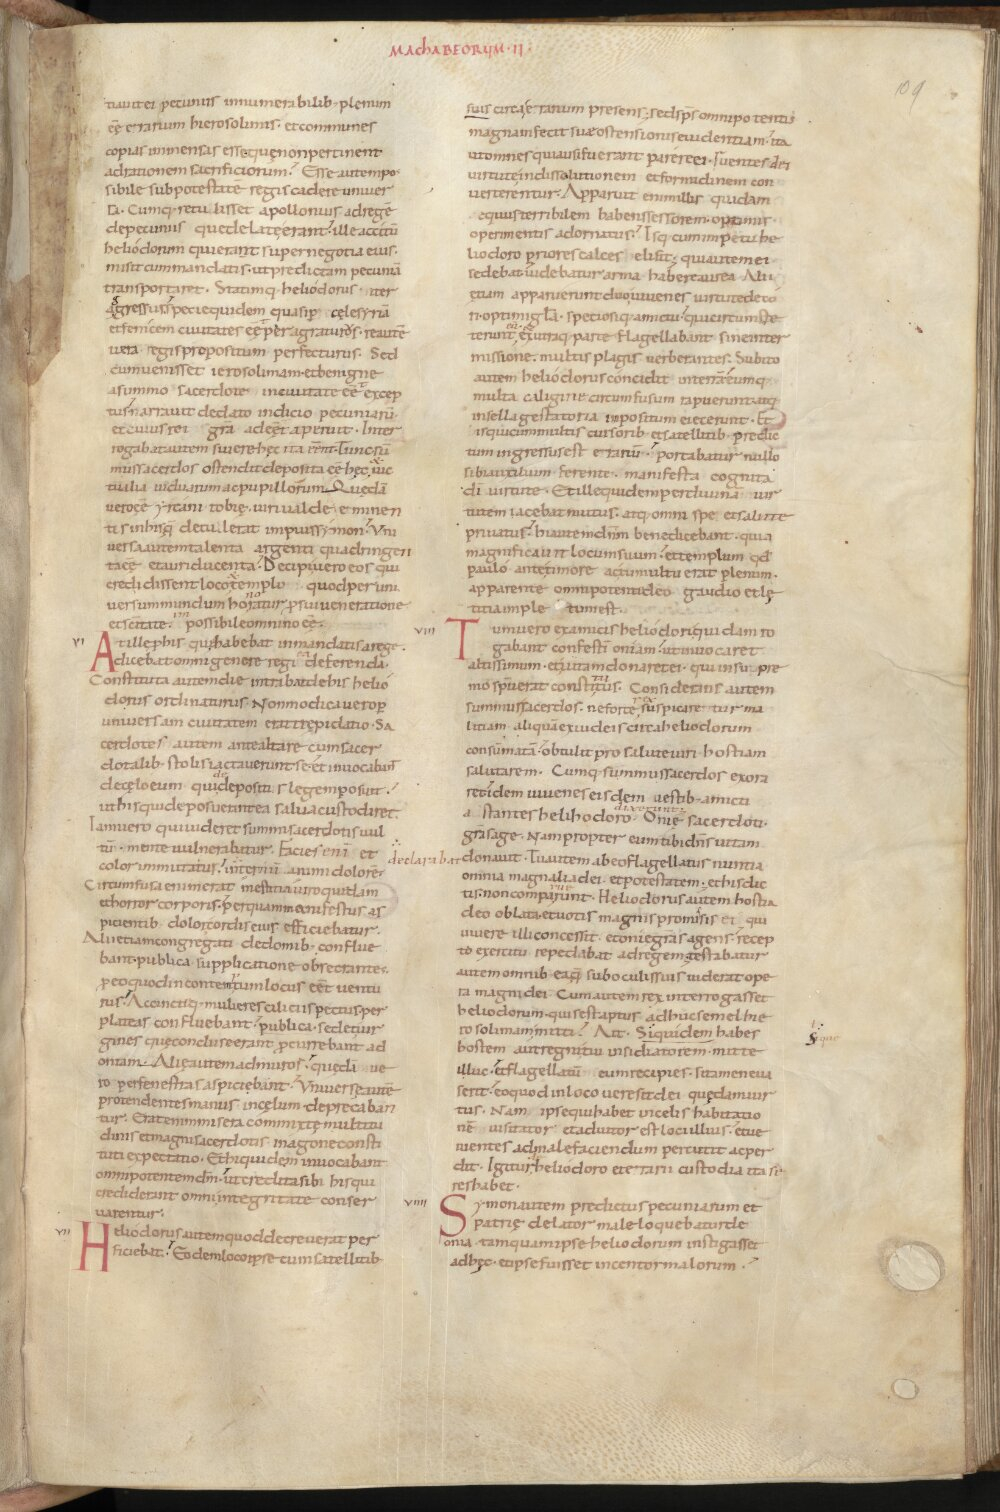 MACHABEORUM · II ·
109
tiavit ei pecuniis innumerabilib· plenum
eē erarium hierosolimis · et communes
copias inmensas esse quę non pertinent
ad rationem sacrificiorum · Esse autem pos
sibile sub potestate regis cadere univer
sa · Cumq· retulisset apollonius ad regē
de pecuniis quę delatę erant · ille accitū
heliodorum qui erant super negotia eius ·
misit cum mandatis · ut predictam pecuniā
transportaret · Statimq· heliodorus iter
aggressus · specie quidem quasi p cęlesyria
et fenicem civitates eēt peragraturus · re autē
vera regis propositum perfecturus · Sed
cum venisset ierosolimam et benigne
a summo sacerdote in civitate eēt excep
tus · narravit de dato indicio pecuniarū ·
et cuius rei grā adeēt aperuit · Inter
rogabat autem si vere hęc ita eēnt · Tunc sū
mus sacerdos ostendit deposita eē hęc · et vic
tualia viduarum ac pupillorum · Quędā
vero eē yrcani tobię viri valde eminen
tis in his q· detulerat impius symon · Uni
versa autem talenta argenti quadringen
ta eē et auri ducenta · Decipi vero eos qui
credidissent loco et templo quod per uni
versum mundum honoratur p sui veneratione
et scitate · impossibile omnino eē ·
VI
At ille p his quę habebat in mandatis a rege ·
dicebat omni genere regi ea deferenda ·
Constituta autem die intrabat de his helio
dorus ordinaturus · Non modica vero p
universam civitatem erat trepidatio · Sa
cerdotes autem ante altare cum sacer
dotalib· stolis iactaverunt se · et invocabant
de cęlo eum qui de depositis legem posuit ·
ut his qui deposuerunt ea salva custodiret ·
Iam vero qui videret summi sacerdotis vul
tū · mente vulnerabatur · Facies enī et
color inmutatus · declarabat internū animi dolorē ·
Circumfusa enim erat męstitia viro quędam
et horror corporis · per quam manifestus as
picientib· dolor cordis eius efficiebatur ·
Alii etiam congregati de domib· conflue
bant · publica supplicatione obsecrantes ·
p eo quod in contemptum locus eēt ventu
rus · Accinctęq· mulieres ciliciis pectus · per
plateas confluebant · publica · sed et vir
gines quę conclusę erant pcurrebant ad
oniam · Alię autem ad muros · quędā ve
ro per fenestras aspiciebant · Universę autē
protendentes manus in cęlum · deprecaban
tur · Erat enim misera commixtę multitu
dinis et magni sacerdotis in agone consti
tuti expectatio · Et hi quidem invocabant
omnipotentem dm̄ · ut credita sibi his qui
crediderant omni integritate conser
varentur ·
VII
Heliodorus autem quod decreverat per
ficiebat · Eodem loco ipse cum satellitib·
suis circa erarium presens · sed sp̄s omnipotentis
magnam fecit suę ostensionis evidentiam · ita
ut omnes qui ausi fuerant parere ei · ruentes dei
virtute in dissolutionem et formidinem con
verterentur · Apparuit enim illis quidam
equus terribilem habens sessorem · optimis
operimentis adornatus · Isq· cum impetu he
liodoro priores calces elisit · qui autem ei
sedebat videbatur arma habere aurea · Alii
etiam apparuerunt duo iuvenes virtute deco
ri · optimi glā · speciosiq· amictu · qui circumste
terunt eū · et ex utraq· parte flagellabant sine inter
missione · multis plagis verberantes · Subito
autem heliodorus concidit in terrā · eumq·
multa caligine circumfusum rapuerunt · atq·
in sella gestatoria impositum eiecerunt · Et
is qui cum multis cursorib· et satellitib· predic
tum ingressus est erariū · portabatur nullo
sibi auxilium ferente · manifesta cognita
dī virtute · Et ille quidem per divinā vir
tutem iacebat mutus · atq· omni spe et salute
privatus · hi autem dn̄m benedicebant · quia
magnificavit locum suum · et templum qd
paulo ante timore ac tumultu erat plenum ·
apparente omnipotente dō gaudio et lę
titia impletum est ·
VIII
Tum vero ex amicis heliodori quidam ro
gabant confestī oniam · ut invocaret
altissimum · et vitam donaret ei · qui in supre
mo spū erat constitutus · Considerans autem
summus sacerdos · ne forte rex suspicaretur ma
litiam aliquā ex iudeis circa heliodorum
consūmatā · obtulit pro salute viri hostiam
salutarem · Cumq· summus sacerdos exora
ret · idem iuvenes eisdem vestib· amicti
astantes helihodoro · dixerunt Onię sacerdoti
grās age · Nam propter eum tibi dn̄s vitam
donavit · Tu autem ab eo flagellatus nuntia
omnia magnalia dei · et potestatem · et his dic
tis · non comparuerunt · Heliodorus autem hostia
deo oblata · et votis magnis promissis ei qui
vivere illi concessit · et onię grās agens · recep
to exercitu repedabat ad regem · testabatur
autem omnib· ea q· sub oculis suis viderat ope
ra magni dei · Cum autem rex interrogasset
heliodorum · quis eēt aptus adhuc semel hie
rosolimam mitti · Ait · Si quidem habes
hostem aut regni tui insidiatorem · mitte
illuc · et flagellatū eum recipies · si tamen eva
serit · eo quod in loco vere sit dei quędam vir
tus · Nam ipse qui habet in celis habitatio
nē visitator et adiutor est loci illius · et ve
nientes ad malefaciendum percutit ac per
dit · Igitur de heliodoro et erarii custodia ita se
res habet ·
VIIII
Symon autem predictus pecuniarum et
patrię delator male loquebatur de
onia · tamquam ipse heliodorum instigasset
ad hęc · et ipse fuisset incentor malorum ·